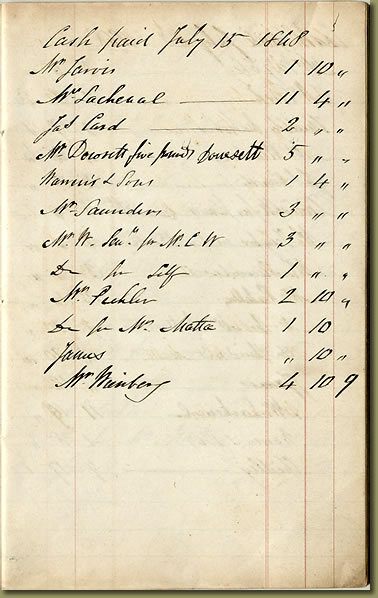 Cash paid July 15 1848
Mr Jarvis 1 10 "
Mr Lachenal 11 4 "
Jas Card 2 " "
Mr Dowsett five pounds Dowsett 5 " "
& Sons 1 4 "
Mr Saunders 3 " "
Mr W. Senr. for Mr. C W 3 " "
Do for Self 1 " "
Mr. 2 10 "
Do for Mr. Matta 1 10
James " 10 "
4 10 9